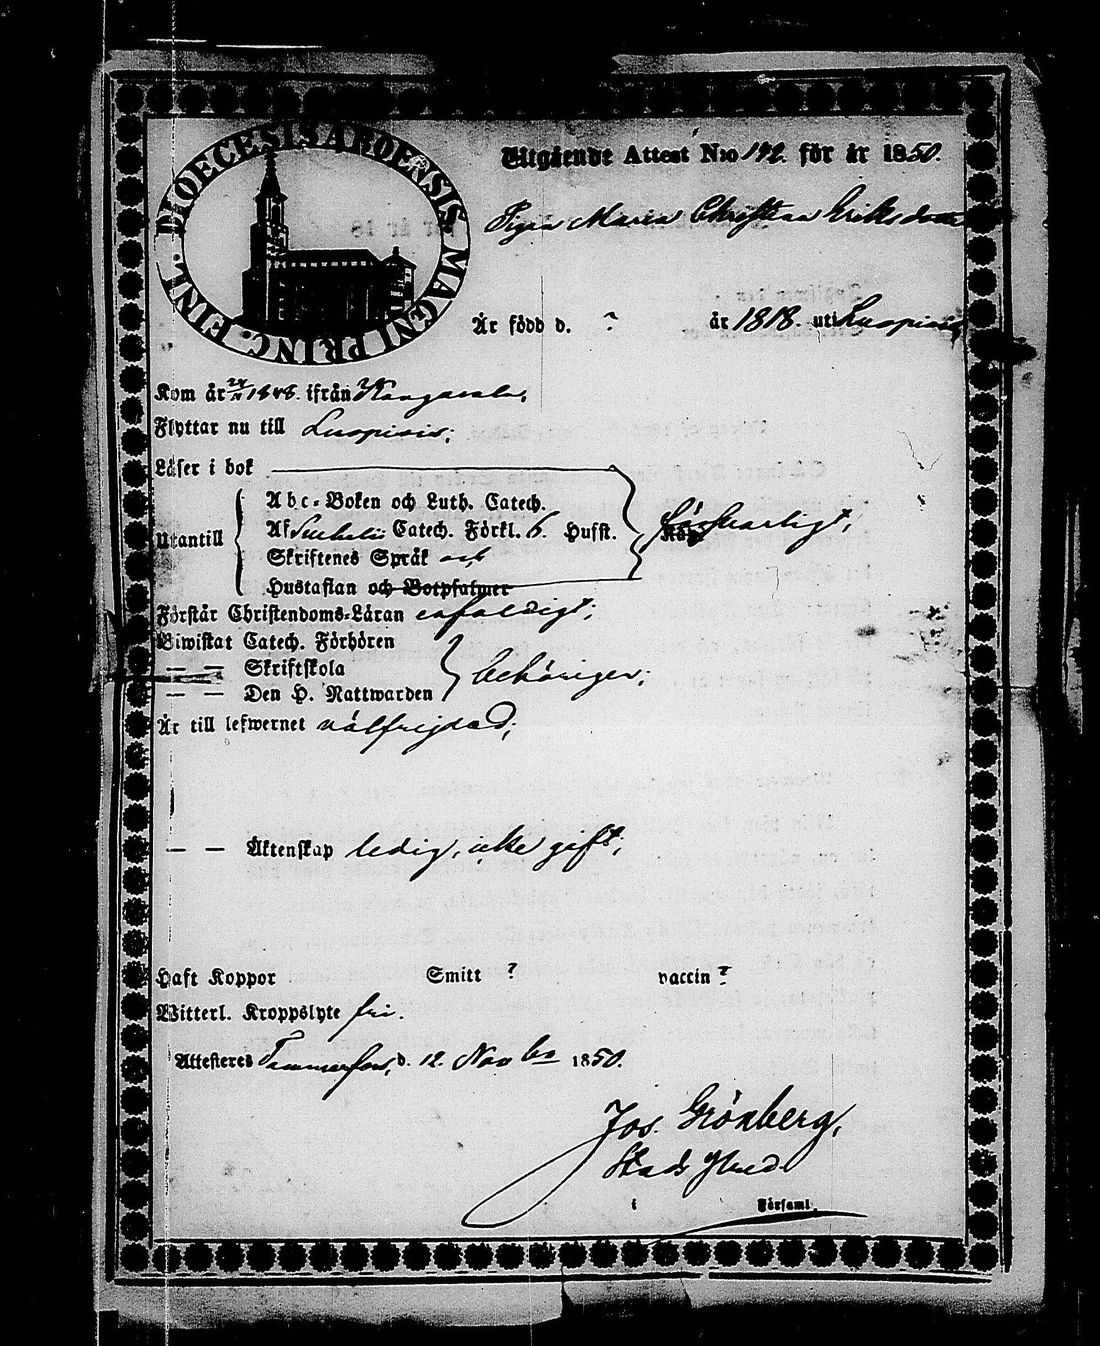 DIOECESIS ABOENSIS MAGNI PRINC. FINL.
Utgående Attest N:ro 142. för år 1850.
Pigan Maria Christina Eriksdotter
Är född d. ? år 1818. uti Kuopio
Kom år 1848. ifrån Kangasala,
Flyttar nu till Kuopio;
Läser i bok
Abc-Boken och Luth. Catech.
Utantill Af Svebelii Catech. Förkl. 6. Hufst. försvarligt,
Skriftenes Språk och
Hustaflan och Botpsalmer
Förstår Christendoms-Läran enfaldigt;
Biwistat Catech. Förhören
— — Skriftskola behörigen;
— — Den H. Nattwarden
Är till lefwernet välfrejdad;
— — Äktenskap ledig, icke gift;
Haft Koppor Smitt ? vaccin ?
Witterl. Kroppslyte fri.
Attesteres Tammerfors, d. 12. Novbr 1850.
Jos. Grönberg,
i Församl.